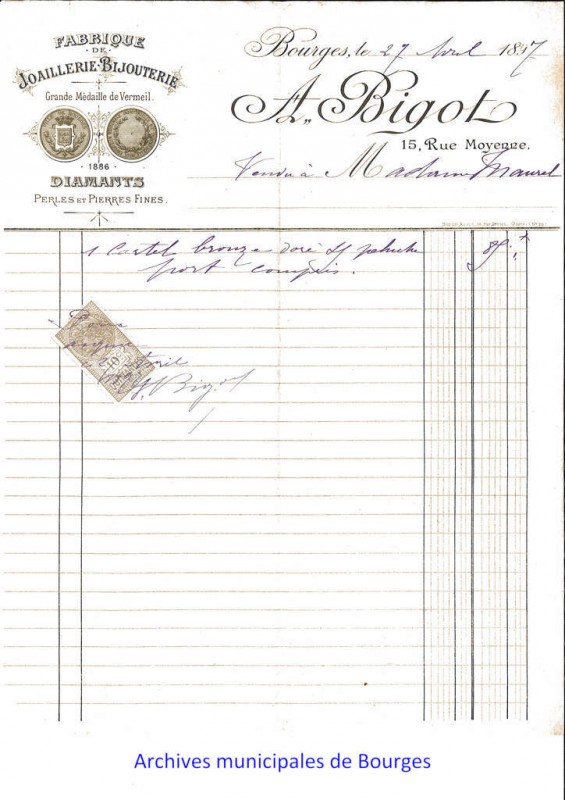 FABRIQUE
· DE ·
JOAILLERIE-BIJOUTERIE
Grande Médaille de Vermeil.
1886
DIAMANTS
PERLES ET PIERRES FINES.
Bourges, le 27 Avril 1897
A. Bigot
15, Rue Moyenne.
Vendu à Madame Maurel
1 Cartel bronze doré 85
port compris.
10
Bigot
Archives municipales de Bourges